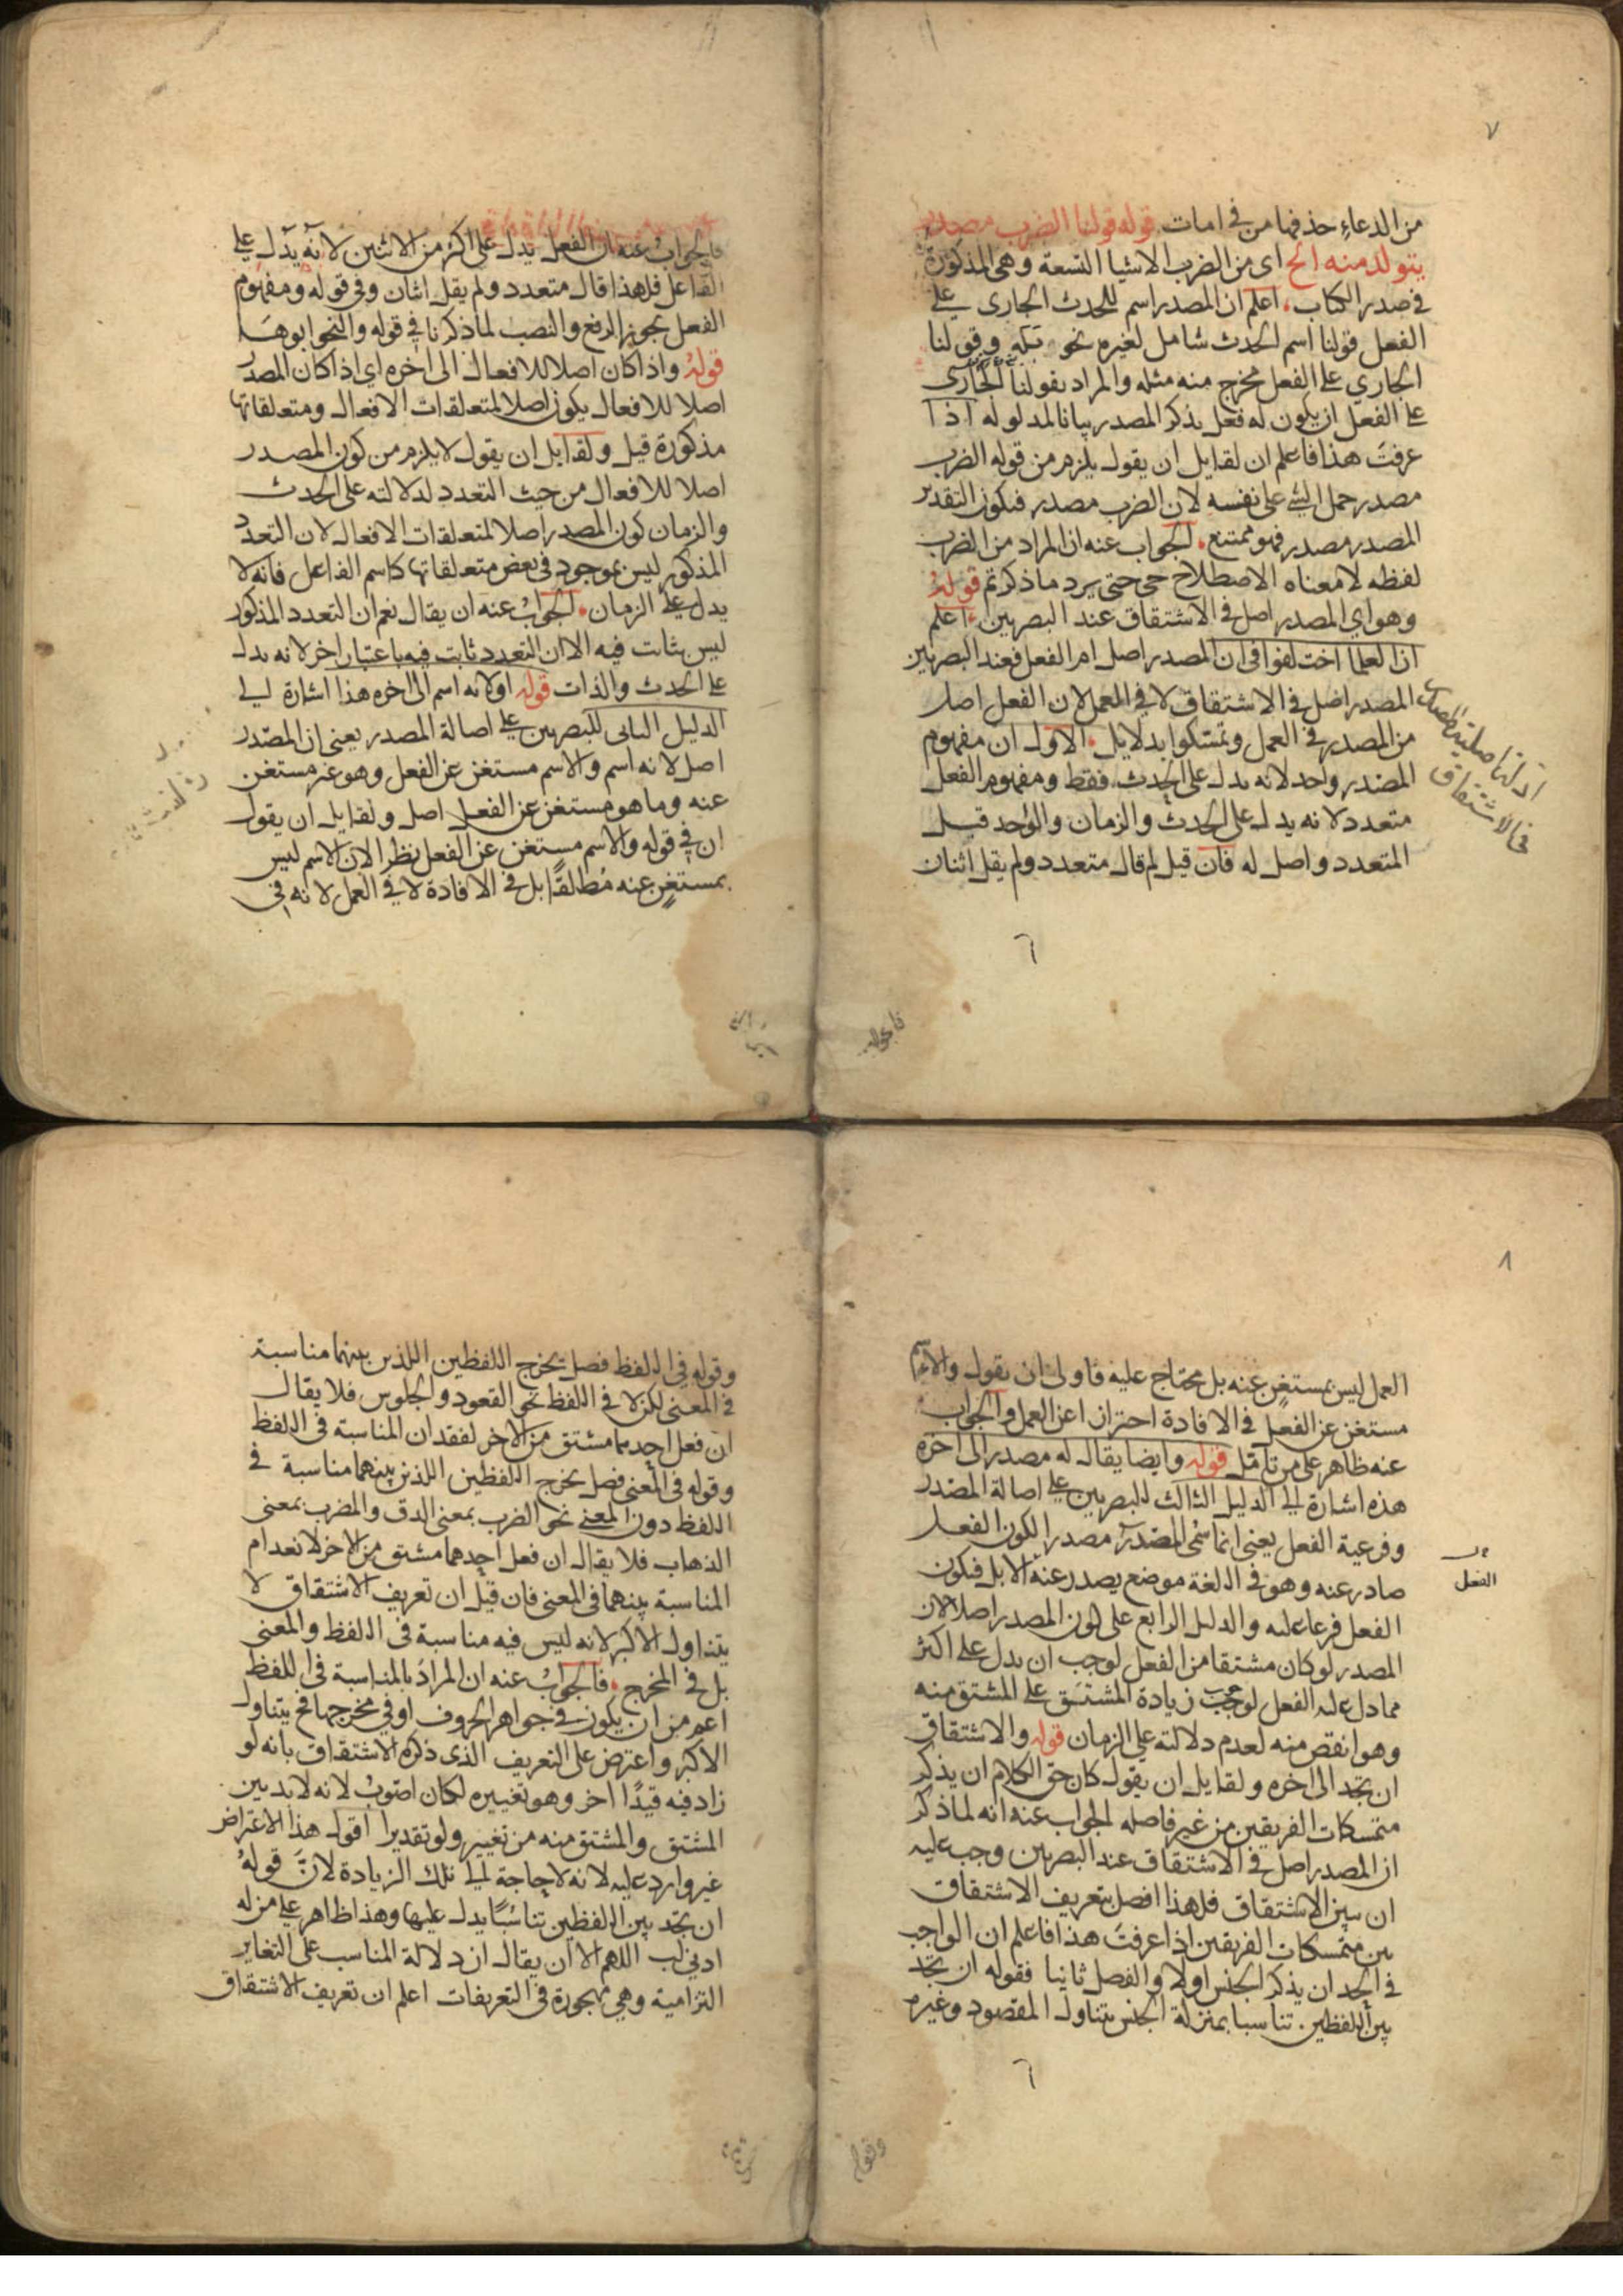 ٧
من الدعاء حذفها من في امات قوله قولنا الضرب مصدر
يتولد منه الخ اى من الضرب الاشيا التسعة وهى المذكورة
فى صدر الكتاب اعلم ان المصدر اسم للحدث الجارى على
الفعل قولنا اسم الحدث شامل لغيره نحو وقولنا
الجارى على الفعل مخرج منه مثله والمراد بقولنا الجارى
على الفعل ان يكون له فعل يذكر المصدر بيانا لمدلوله اذا
عرفت هذا فاعلم ان لقايل ان يقول يلزم من قوله الضرب
مصدر حمل الشئ على نفسه لان الضرب مصدر فيكون التقدير
المصدر مصدر فهو ممتنع الجواب عنه ان المراد من الضرب
لفظه لا معناه الاصطلاحى حتى يرد ما ذكرتم قوله
وهو اي المصدر اصل فى الاشتقاق عند البصريين اعلم
ان العلما اختلفوا فى ان المصدر اصل ام الفعل فعند البصريين
المصدر اصل فى الاشتقاق لا فى العمل لان الفعل اصل
من المصدر فى العمل وتمسكوا بدلايل الاول ان مفهوم
المصدر واحد لانه يدل على الحدث فقط ومفهوم الفعل
متعدد لانه يدل على الحدث والزمان والواحد قبل
المتعدد واصل له فان قيل لم قال متعدد ولم يقل اثنان
فى الاشتقاق
٦
فالجواب عنه ان الفعل يدل على اكثر من الاثنين لانه يدل على
الفاعل فلهذا قال متعدد ولم يقل اثنان وفى قوله ومفهوم
الفعل يجوز الرفع والنصب لما ذكرنا فى قوله والنحو ابوها
قوله واذا كان اصلا للافعال الى اخره اى اذا كان المصدر
اصلا للافعال يكون اصلا لمتعلقات الافعال ومتعلقاتها
مذكورة قيل ولقايل ان يقول لا يلزم من كون المصدر
اصلا للافعال من حيث التعدد لدلالته على الحدث
والزمان كون المصدر اصلا لمتعلقات الافعال لان التعدد
المذكور ليس بموجود فى بعض متعلقاتها كاسم الفاعل فانه لا
يدل على الزمان الجواب عنه ان يقال نعم ان التعدد المذكور
ليس بثابت فيه الا ان التعدد ثابت فيه باعتبار اخر لانه يدل
على الحدث والذات قوله او لانه اسم الى اخره هذا اشارة الى
الدليل الثانى للبصريين على اصالة المصدر يعنى ان المصدر
اصل لانه اسم والاسم مستغن عن الفعل وهو غير مستغن
عنه وما هو مستغن عن الفعل اصل ولقايل ان يقول
ان فى قوله والاسم مستغن عن الفعل نظرا لان الاسم ليس
بمستغن عنه مطلقا بل فى الافادة لا فى العمل لانه فى
فالجواب
٨
العمل ليس بمستغن عنه بل محتاج عليه فاولى ان يقول والاسم
مستغن عن الفعل فى الافادة احترازا عن العمل والجواب
عنه ظاهر على من تامل قوله وايضا يقال له مصدر الى اخره
هذه اشارة الى الدليل الثالث للبصريين على اصالة المصدر
وفرعية الفعل يعنى انما سمى المصدر مصدرا لكون الفعل
صادر عنه وهو فى اللغة موضع يصدر عنه الابل فيكون
الفعل فرعا عليه والدليل الرابع على كون المصدر اصلا لان
المصدر لو كان مشتقا من الفعل لوجب ان يدل على اكثر
مما دل عليه الفعل لوجب زيادة المشتق على المشتق منه
وهو انقص منه لعدم دلالته على الزمان قوله والاشتقاق
ان تجد الى اخره ولقايل ان يقول كان حق الكلام ان يذكر
متمسكات الفريقين من غير فاصله الجواب عنه انه لما ذكر
ان المصدر اصل فى الاشتقاق عند البصريين وجب عليه
ان يبين الاشتقاق فلهذا افصل بتعريف الاشتقاق
بين متمسكات الفريقين اذا عرفت هذا فاعلم ان الواجب
فى الحد ان يذكر الجنس اولا والفصل ثانيا فقوله ان تجد
بين اللفظين تناسبا بمنزلة الجنس يتناول المقصود وغيره
الفعل
٦
وقوله فى اللفظ فصل يخرج اللفظين اللذين بينهما مناسبة
فى المعنى لكن لا فى اللفظ نحو القعود والجلوس فلا يقال
ان فعل احدهما مشتق من الاخر لفقدان المناسبة فى اللفظ
وقوله فى المعنى فصل يخرج اللفظين اللذين بينهما مناسبة فى
اللفظ دون المعنى نحو الضرب بمعنى الدق والضرب بمعنى
الذهاب فلا يقال ان فعل احدهما مشتق من الاخر لانعدام
المناسبة بينهما فى المعنى فان قيل ان تعريف الاشتقاق لا
يتناول الاكبر لانه ليس فيه مناسبة فى اللفظ والمعنى
بل فى المخرج فالجواب عنه ان المراد بالمناسبة فى اللفظ
اعم من ان يكون فى جواهر الحروف او فى مخرجها فح يتناول
الاكبر واعترض على التعريف الذى ذكره الاشتقاق بانه لو
زاد فيه قيدا اخر وهو تغييره لكان اصوب لانه لابد بين
المشتق والمشتق منه من تغيير ولو تقديرا اقول هذا الاعتراض
غير وارد عليه لانه لا حاجة الى تلك الزيادة لان قوله
ان تجد بين اللفظين تناسبا يدل عليها وهذا ظاهر على من له
ادنى لب اللهم الا ان يقال ان دلالة المناسب على التغاير
التزامية وهي مهجورة فى التعريفات اعلم ان تعريف الاشتقاق
وقوله